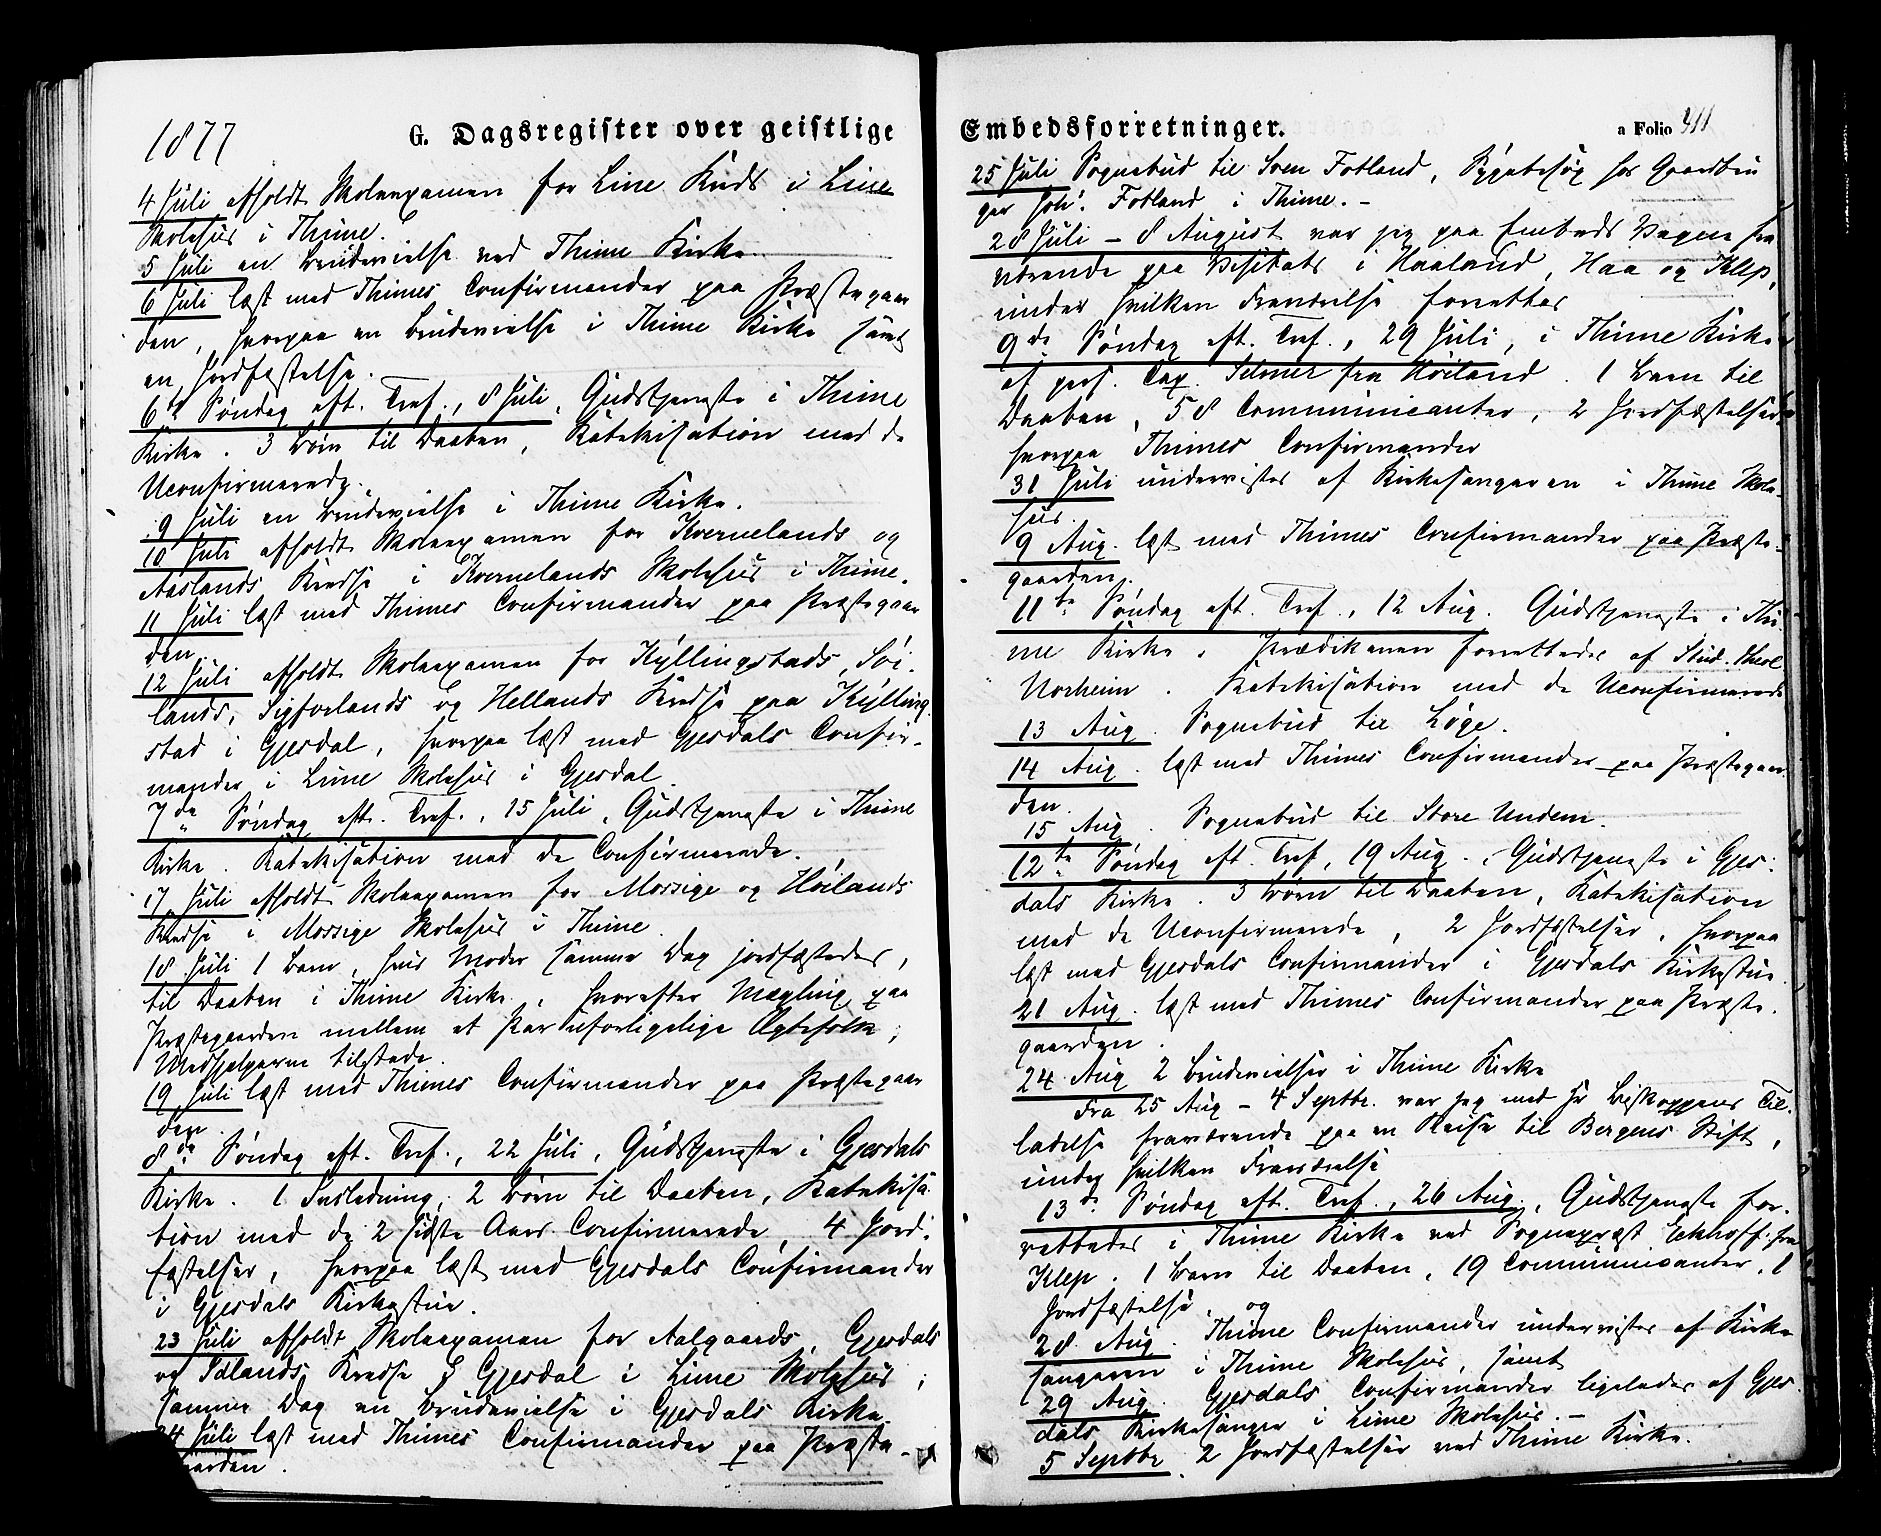 1877
G. Dagsregister over geistlige
4 Juli afholdt Skoleexamen for Line Kreds i Line
Skolehus i Thime.
5 Juli en Brudevielse ved Thime Kirke.
6 Juli læst med Thimes Confirmander paa Præstegaar
den, hvorpaa en Brudevielse i Thime Kirke samt
en Jordfæstelse.
6te Søndag eft. Tref., 8 Juli, Gudstjeneste i Thime
Kirke. 3 Børn til Daaben, Katekisation med de
Uconfirmerede.
9 Juli en Brudevielse i Thime Kirke.
10 Juli afholdt Skoleexamen for Kvernelands og
Aaslands Kredse i Kvernelands Skolehus i Thime.
11 Juli læst med Thimes Confirmander paa Præstegaar
den.
12 Juli afholdt Skoleexamen for Kyllingstads, Søi-
lands, Sigforlands og Hellands Kredse paa Kylling
stad i Gjesdal, hvorpaa læst med Gjesdals Confir-
mander i Lime Skolehus i Gjesdal.
7de Søndag eft. Tref., 15 Juli, Gudstjeneste i Thime
Kirke. Katekisation med de Confirmerede.
17 Juli afholdt Skoleexamen for Mossige og Høilands
Kredse i Mossige Skolehus i Thime.
18 Juli 1 Barn, hvis Moder samme Dag jordfæstedes,
til Daaben i Thime Kirke, hvorefter Mægling paa
Præstegaarden mellem et Par uforligelige Ægtefolk;
Medhjelperne tilstede.
19 Juli læst med Thimes Confirmander paa Præstegaar
den.
8de Søndag eft. Tref., 22 Juli, Gudstjeneste i Gjesdals
Kirke. 1 Indledning, 2 Børn til Daaben, Katekisa
tion med de 2 sidste Aars Confirmerede, 4 Jord-
fæstelser, hvorpaa læst med Gjesdals Confirmander
i Gjesdals Kirkestue.
23 Juli afholdt Skoleexamen for Aalgaards, Gjesdals
og Idlands Kredse i Gjesdal i Lime Skolehus;
samme Dag en Brudevielse i Gjesdals Kirke
24 Juli læst med Thimes Confirmander paa Præste-
gaarden.
Embedsforretninger.
a Folio 311
25 Juli Sognebud til Sven Fotland, Sygebesøg hos Gaardbru
ger Joh. Fotland i Thime. -
28 Juli - 8 August var jeg paa Embeds Vegne fra
værende paa Visitats i Haaland, Haa og Klep,
under hvilken Fraværelse forrettes
9de Søndag eft. Tref., 29 Juli, i Thime Kirke
af pers. Cap. Selmer fra Høiland. 1 Barn til
Daaben, 58 Communicanter, 2 Jordfæstelser,
hvorpaa Thimes Confirmander
31 Juli undervistes af Kirkesangeren i Thime Skole-
hus.
9 Aug. læst med Thimes Confirmander paa Præste-
gaarden.
11te Søndag eft. Tref., 12 Aug. Gudstjeneste i Thi-
me Kirke. Prædikenen forrettedes af Stud. theol
Norheim. Katekisation med de Uconfirmerede
13 Aug. Sognebud til Løge.
14 Aug. læst med Thimes Confirmander paa Præstegaar
den.
15 Aug. Sognebud til Store Undem.
12te Søndag eft. Tref, 19 Aug., Gudstjeneste i Gjes-
dals Kirke. 3 Børn til Daaben, Katekisation
med de Uconfirmerede, 2 Jordfæstelser, hvorpaa
læst med Gjesdals Confirmander i Gjesdals Kirkestue.
21 Aug. læst med Thimes Confirmander paa Præste-
gaarden.
24 Aug 2 Brudevielser i Thime Kirke
Fra 25 Aug - 4 Septbr. var jeg med Hr Biskoppens Til-
ladelse fraværende paa en Reise til Bergens Stift,
under hvilken Fraværelse
13de Søndag eft. Tref., 26 Aug., Gudstjeneste for-
rettedes i Thime Kirke ved Sognepræst Eckhoff fra
Klep. 1 Barn til Daaben, 19 Communicanter, 1
Jordfæstelse, og
28 Aug. Thime Confirmander undervistes af Kirke
sangeren i Thime Skolehus, samt
29 Aug. Gjesdals Confirmander ligeledes af Gjes
dals Kirkesanger i Lime Skolehus. -
5 Septbr. 2 Jordfæstelser ved Thime Kirke.